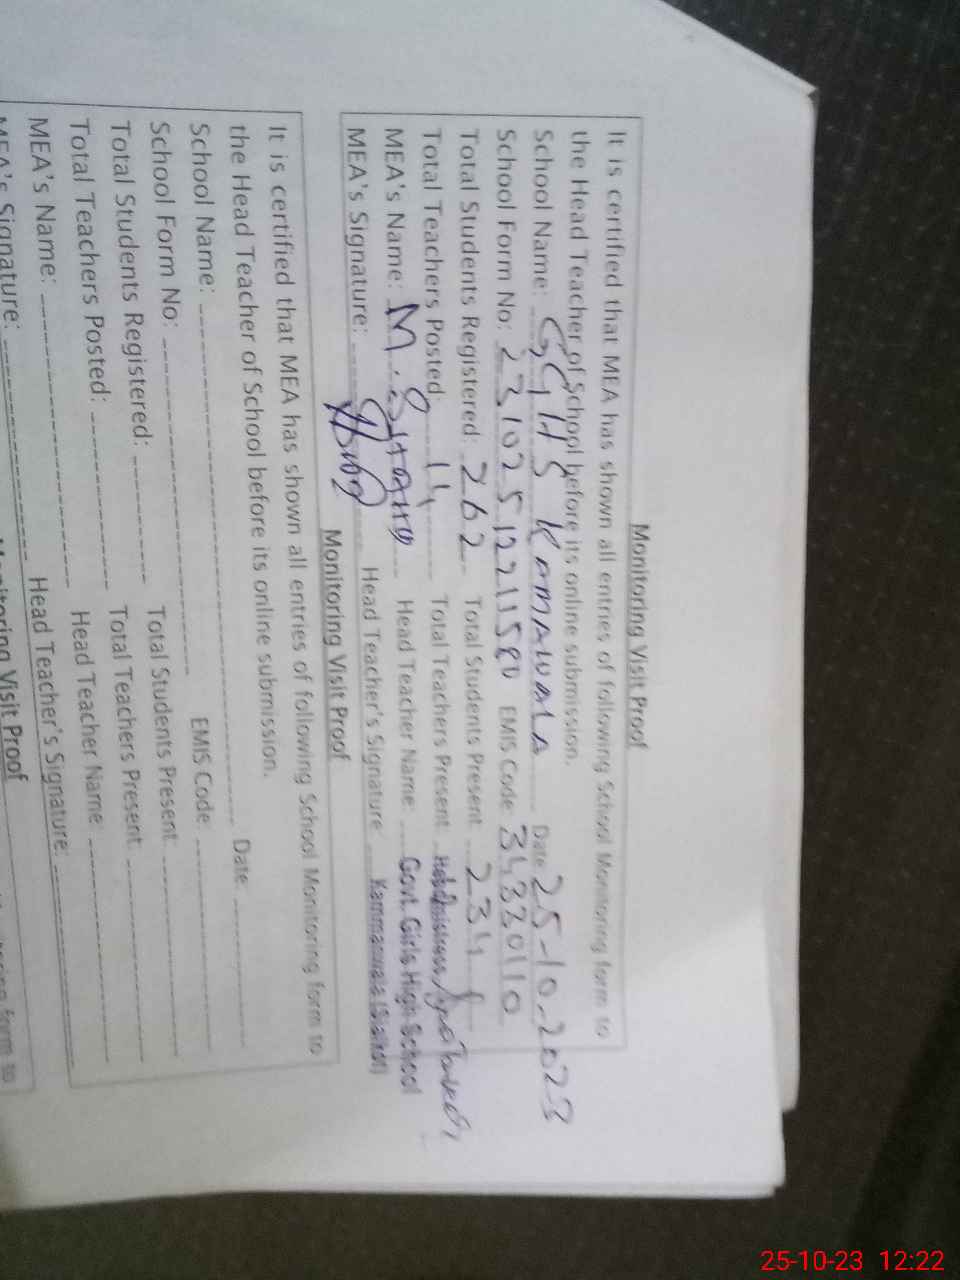 Monitoring Visit Proof
It is certified that MEA has shown all entries of following School Monitoring form to
the Head Teacher of School before its online submission.
School Name: GGHS KAMALWALA Date 25-10-2023
School Form No: 23102512211580 EMIS Code 34320110
Total Students Registered: 262 Total Students Present 234
Total Teachers Posted: 14 Total Teachers Present Headmistress
MEA's Name: M. Head Teacher Name: Govt. Girls High School
MEA's Signature: Head Teacher's Signature Kammanwala (Sialkot)
Monitoring Visit Proof
It is certified that MEA has shown all entries of following School Monitoring form to
the Head Teacher of School before its online submission.
School Name: Date
School Form No: EMIS Code:
Total Students Registered: Total Students Present
Total Teachers Posted: Total Teachers Present
MEA's Name: Head Teacher Name:
MEA's Signature: Head Teacher's Signature:
Monitoring Visit Proof
form to
25-10-23 12:22